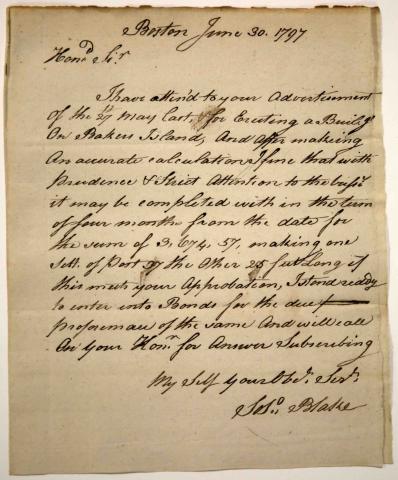 Boston June 30. 1797
Hon.d Sir
I have attend to your Advertisment
of the 27 May last, for Erecting a Build.g
On Bakers Island, And After makeing
An accurate calculation I fine that with
prudence & Strict Attention to the bus.s
it may be completed with in the term
of four months from the date for
the sum of 3,674,57, making one
sett. of Port the Other 25 feet Long if
this meets your Approbation, I stand reddy
to enter into Bonds for the due
proformance of the same And will call
On Your Hon.r for Answer Subscribing
My Self your Obe.t Ser.t
Blake